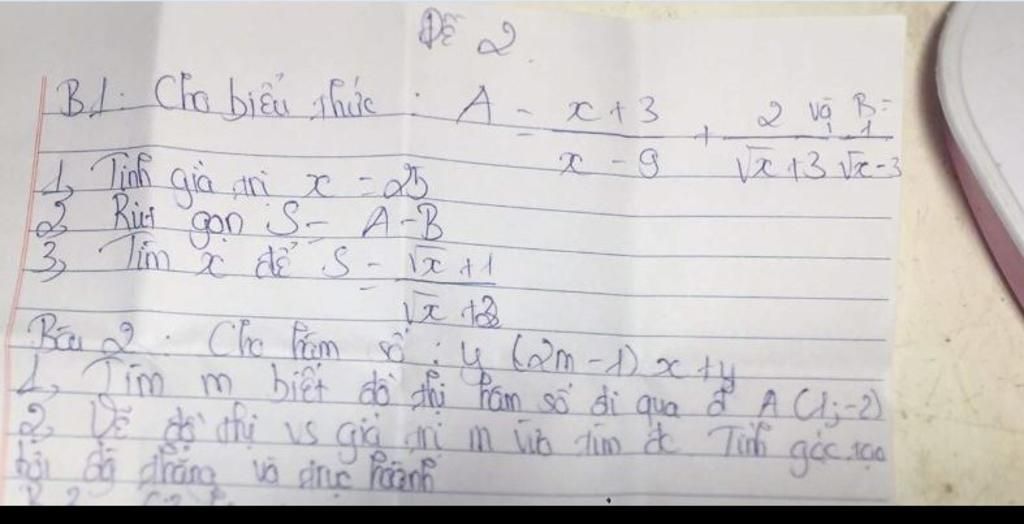 Đề 2.
B1: Cho biểu thức: A = (x + 3)/(x - 9) + 2/(√x + 3) và B = 1/(√x - 3)
1, Tính giá trị x = 25
2, Rút gọn S = A - B
3, Tìm x để S = (√x + 1)/(√x + 3)
Bài 2: Cho hàm số: y (2m - 1) x + 4
1, Tìm m biết đồ thị hàm số đi qua đ A (1; -2)
2, Vẽ đồ thị vs giá trị m vừa tìm đc Tính góc tạo
bởi đg thẳng và trục hoành